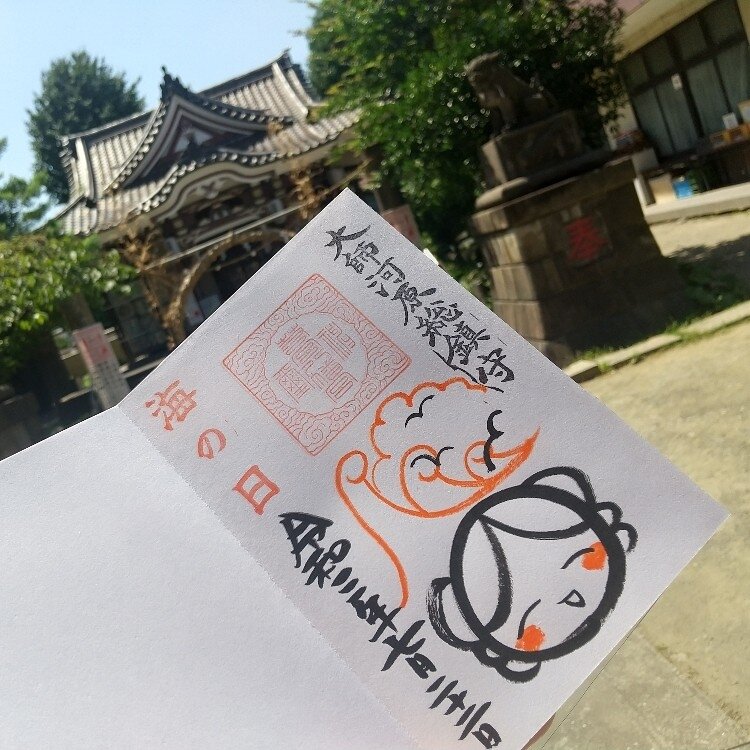 大師河原総鎮守
海の日
令和二年七月二十三日
奉